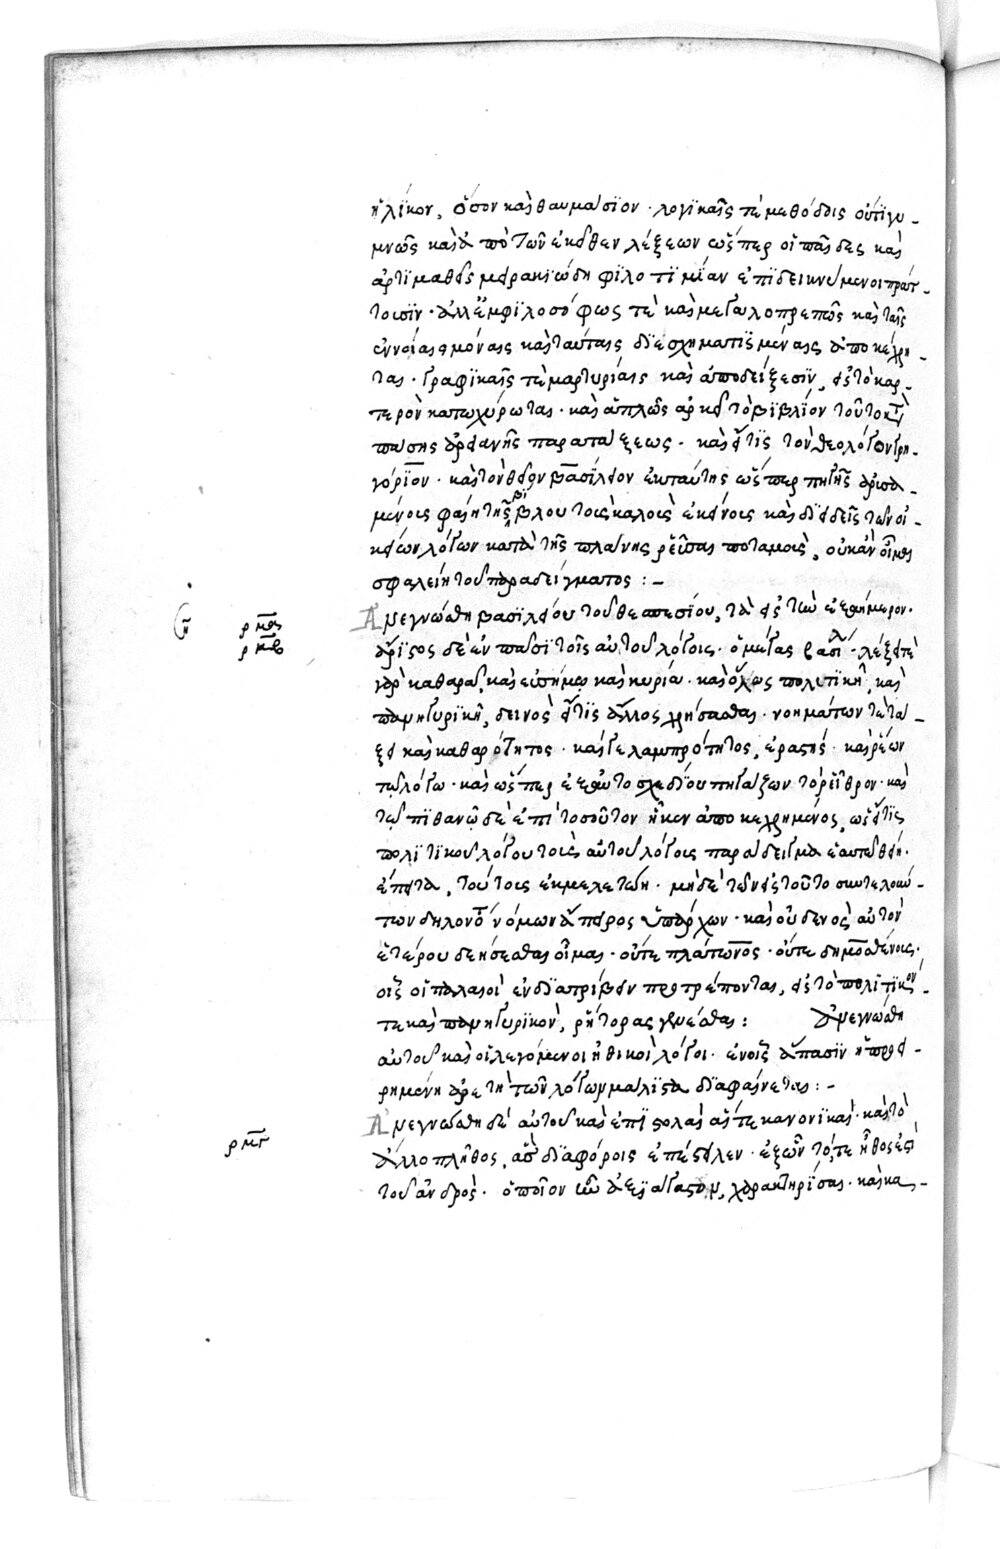 ἡλίκον, ὅσον καὶ θαυμάσιον· λογικαῖς τὲ μεθόδοις οὔτι γυ-
μνῶς καὶ ἀπὸ τῶν ἐκεῖθεν λέξεων ὥσπερ οἱ παῖδες καὶ
ἀρτιμαθεῖς μειρακιώδη φιλοτιμίαν ἐπιδεικνύμενοι πράτ-
τουσιν· ἀλλ' ἐμφιλοσόφως τὲ καὶ μεγαλοπρεπῶς καὶ ταῖς
ἐννοίαις μόναις καὶ ταύταις διεσχηματισμέναις ἀποκέχρη-
ται· γραφικαῖς τὲ μαρτυρίαις καὶ ἀποδείξεσιν, εἰς τὸ καρ-
τερὸν κατωχύρωται· καὶ ἁπλῶς ἀρκεῖ τὸ βιβλίον τοῦτο ἀντὶ
πάσης ἀρειανῆς παρατάξεως· καὶ εἴ τις τὸν θεολόγον γρη-
γόριον· καὶ τὸν θεῖον βασίλειον ἐκ ταύτης ὥσπερ πηγῆς ἀρυσα-
μένοις φαίη τῆς βίβλου τοὺς καλοὺς ἐκείνοις καὶ διειδεῖς τῶν οἰ-
κείων λόγων κατὰ τῆς πλάνης ῥεῦσαι ποταμοὺς, οὐκ ἂν οἶμαι
σφαλείη τοῦ παραδείγματος :-
ρμα Ἀνεγνώσθη βασιλείου τοῦ θεσπεσίου, τὰ εἰς τὴν ἑξαήμερον·
ρμβ ἄριστος δὲ ἐν πᾶσι τοῖς αὐτοῦ λόγοις· ὁ μέγας βασίλ· λέξει τὲ
γὰρ καθαρᾷ, καὶ εὐσήμῳ καὶ κυρίᾳ· καὶ ὅλως πολιτικῇ, καὶ
πανηγυρικῇ, δεινὸς εἴ τις ἄλλος χρήσασθαι· νοημάτων τὲ τά-
ξει καὶ καθαρότητος· καί γε λαμπρότητος, ἐραστής· καὶ ῥέων
τῷ λόγῳ· καὶ ὥσπερ ἐξ αὐτοσχεδίου πηγάζων τὸ ῥεῖθρον· καὶ
τῷ πιθανῷ δὲ ἐπὶ τοσοῦτον ἧκεν ἀποκεχρημένος, ὡς εἴ τις
πολιτικοῦ λόγου τοὺς αὐτοῦ λόγους παράδειγμα ἑαυτῷ θείη·
ἔπειτα, τούτοις ἐκμελετῴη· μηδὲ τῶν εἰς τοῦτο συντελούν-
των δηλονότι νόμων ἄπειρος ὑπάρχων· καὶ οὐδενὸς αὐτὸν
ἑτέρου δεήσεσθαι οἶμαι· οὔτε πλάτωνος· οὔτε δημοσθένους·
οἷς οἱ παλαιοὶ ἐνδιατρίβειν προτρέπονται, εἰς τὸ πολιτικόν
τε καὶ πανηγυρικὸν, ῥήτορας γενέσθαι : Ἀνεγνώσθη
αὐτοῦ καὶ οἱ λεγόμενοι ἠθικοὶ λόγοι· ἐν οἷς ἅπασιν ἡ προει-
ρημένη ἀρετὴ τῶν λόγων μάλιστα διαφαίνεται :-
ρμγ Ἀνεγνώσθη δὲ αὐτοῦ καὶ ἐπιστολαὶ αἵ τε κανονικαὶ· καὶ τὸ
ἄλλο πλῆθος, ἃς διαφόροις ἐπέστειλεν· ἐξ ὧν τό, τε ἦθος ἐστὶ
τοῦ ἀνδρὸς· ὁποῖον ἦν ἀνειμάξασθαι, χαρακτηρίσαι· καὶ κα-